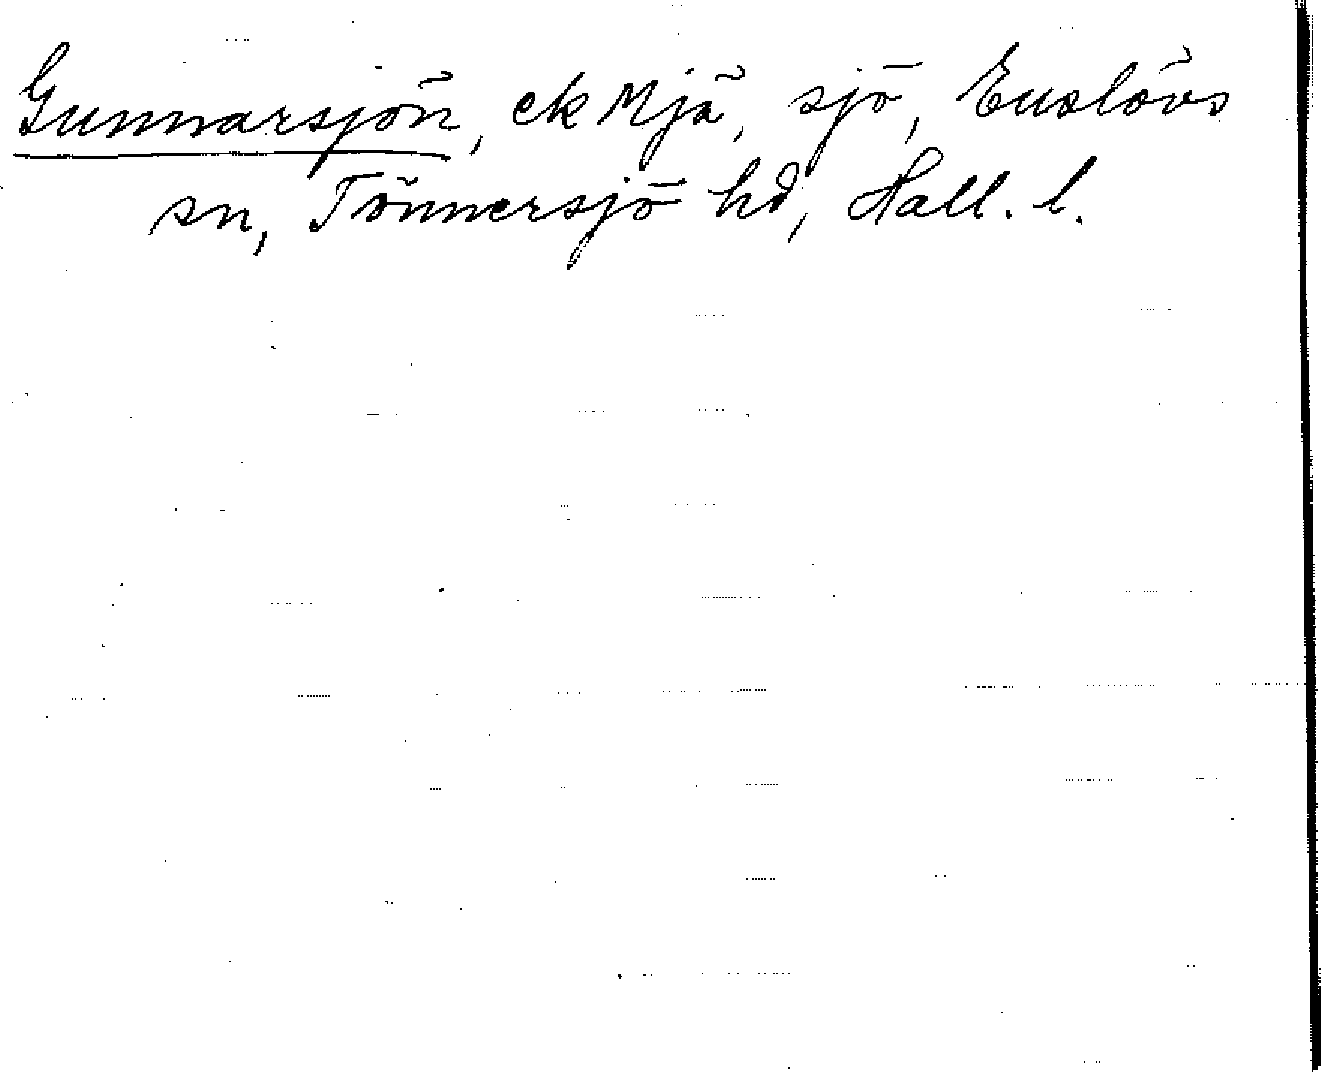 Gunnarsjön, ek Mjä, sjö, Enslövs
sn, Tönnersjö hd, Hall. l.